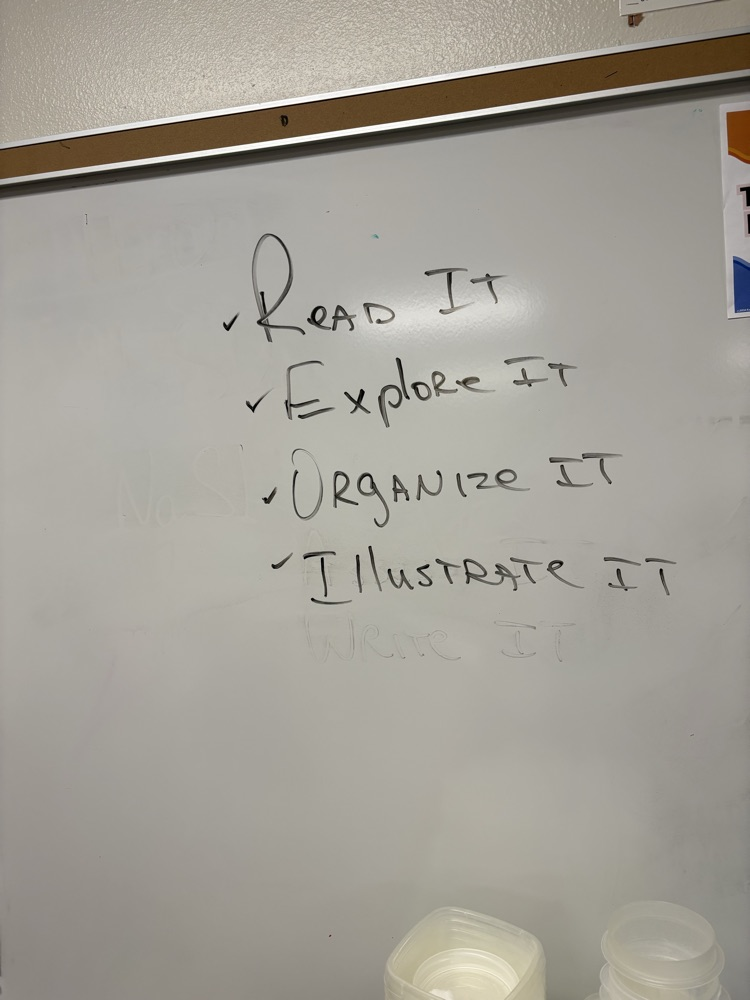 ✓ Read It
✓ Explore It
✓ Organize It
✓ Illustrate It
Write It